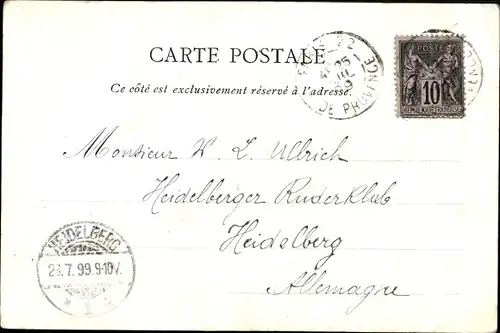 CARTE POSTALE
Ce côté est exclusivement réservé à l'adresse.
PARIS 22
25
DE PROVENCE
POSTE
10
Monsieur W. L. Ullrich
Heidelberger Ruderklub
Heidelberg
Allemagne
HEIDELBERG
7.99.9-10V.
1